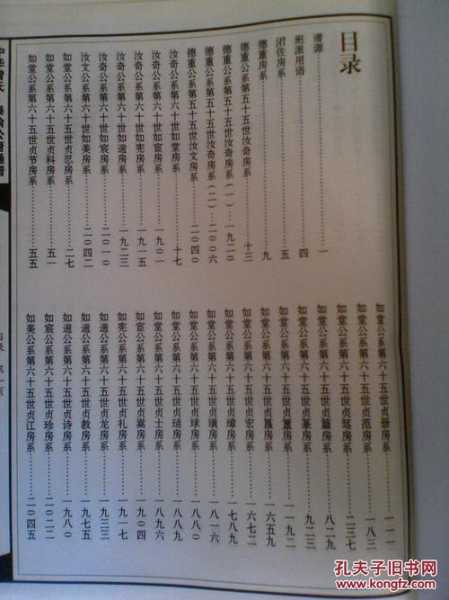 目录
谱源……一
班派用语……四
湉佐房系……五
德重房系……九
德重公系第五十五世汝奇房系……十三
德重公系第五十五世汝奇房系(一)……一九二〇
德重公系第五十五世汝奇房系(二)……二〇〇六
德重公系第五十五世汝文房系……二〇四〇
汝奇公系第六十世如堂房系……十七
汝奇公系第六十世如宦房系……一九〇一
汝奇公系第六十世如宪房系……一九一五
汝奇公系第六十世如道房系……一九二三
汝奇公系第六十世如宸房系……二〇一〇
汝文公系第六十世如美房系……二〇四二
如堂公系第六十五世贞忍房系……二七
如堂公系第六十五世贞科房系……五一
如堂公系第六十五世贞节房系……五五
如堂公系第六十五世贞册房系……一一一
如堂公系第六十五世贞范房系……一八三
如堂公系第六十五世贞笃房系……二三七
如堂公系第六十五世贞篇房系……八二九
如堂公系第六十五世贞篆房系……九二三
如堂公系第六十五世贞房系……一一九二
如堂公系第六十五世贞房系……一六五九
如堂公系第六十五世贞宏房系……一六七二
如堂公系第六十五世贞房系……一七八九
如堂公系第六十五世贞房系……一八一六
如堂公系第六十五世贞球房系……一八八〇
如堂公系第六十五世贞琦房系……一八八九
如堂公系第六十五世贞士房系……一八九六
如宦公系第六十五世贞嘉房系……一九〇四
如宪公系第六十五世贞礼房系……一九一七
如道公系第六十五世贞龙房系……一九三三
如道公系第六十五世贞教房系……一九七五
如道公系第六十五世贞诗房系……一九八〇
如宸公系第六十五世贞珍房系……二〇二一
如美公系第六十五世贞江房系……二〇四五
孔夫子旧书网
www.kongfz.com